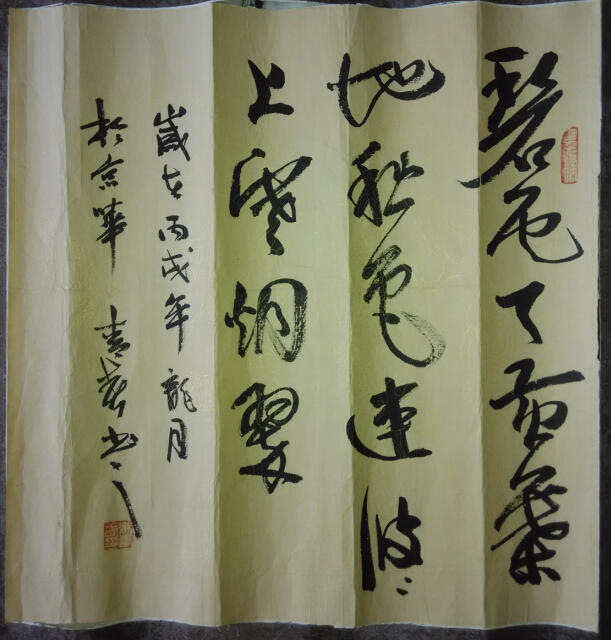 碧云天黄葉
地秋色連波〻
上寒烟翠
歲在丙戌年龍月
於京華 書之